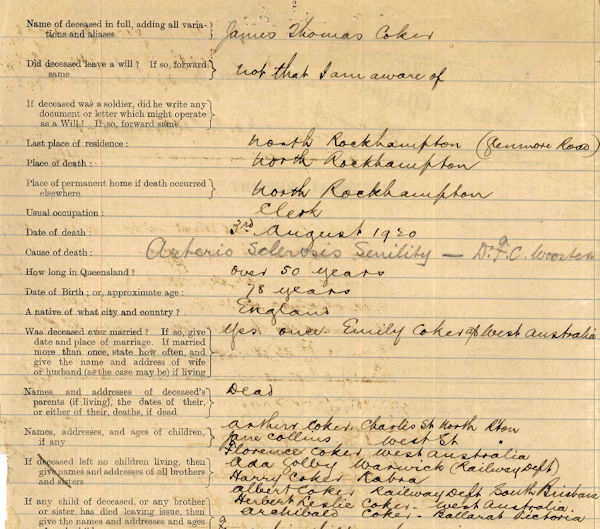 2
Name of deceased in full, adding all varia- James Thomas Coker
tions and aliases
Did deceased leave a will? If so, forward not that I am aware of
same
If deceased was a soldier, did he write any
document or letter which might operate
as a Will? If so, forward same
Last place of residence: North Rockhampton (Glenmore Road)
Place of death: North Rockhampton
Place of permanent home if death occurred North Rockhampton
elsewhere
Usual occupation: Clerk
Date of death: 3rd August 1920
Cause of death: Arterio Sclerosis Senility — Dr F. C. Wooster
How long in Queensland? over 50 years
Date of Birth; or, approximate age: 78 years
A native of what city and country? England
Was deceased ever married? If so, give Yes once Emily Coker of West Australia
date and place of marriage. If married
more than once, state how often, and
give the name and address of wife
or husband (as the case may be) if living
Names and addresses of deceased's Dead
parents (if living), the dates of their,
or either of their, deaths, if dead
Names, addresses, and ages of children, Arthur Coker Charles St North Rton
if any Jane Collins West St "
Florence Coker West Australia
If deceased left no children living, then Ada Golby Warwick (Railway Dept)
give names and addresses of all brothers Harry Coker Kabra
and sisters Albert Coker Railway Dept South Brisbane
If any child of deceased, or any brother Herbert Leslie Coker - West Australia.
or sister has died leaving issue, then Archibald Coker - Ballarat Victoria
give the names and addresses and ages